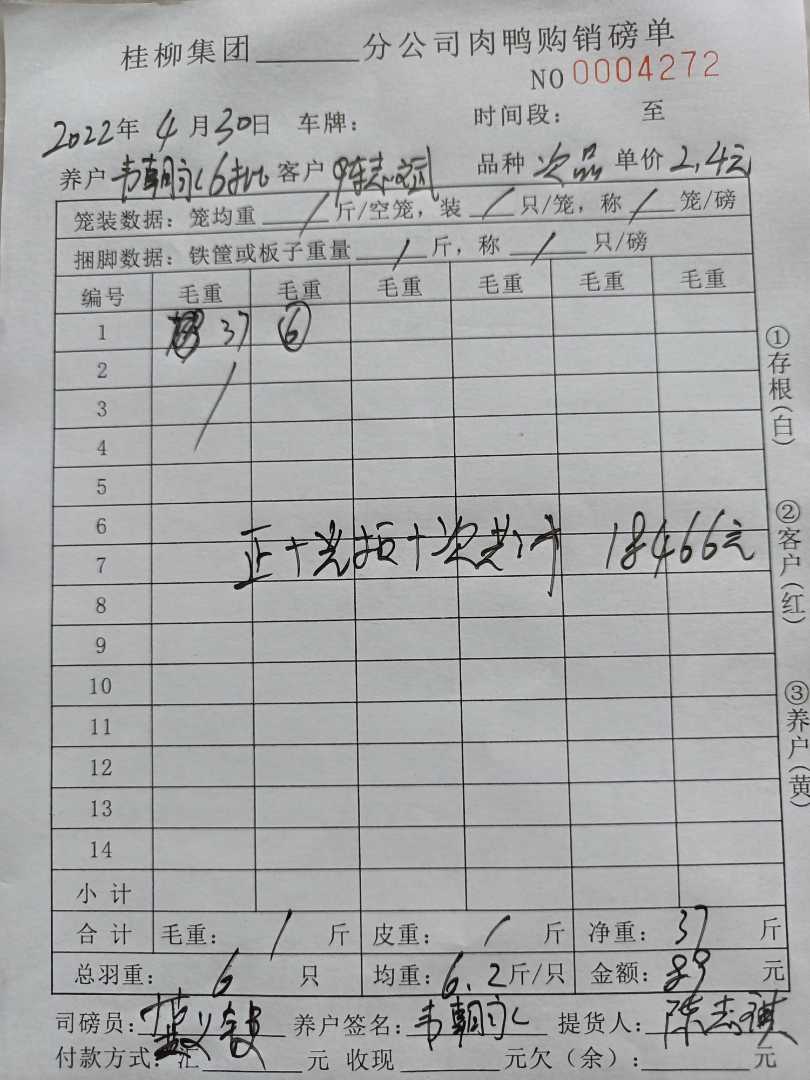 桂柳集团______分公司肉鸭购销磅单
NO 0004272
2022年 4月30日 车牌： 时间段： 至
养户 韦朝 6批 客户 陈志斌 品种 次品 单价 2.4元
笼装数据：笼均重 / 斤/空笼，装 / 只/笼，称 / 笼/磅
捆脚数据：铁筐或板子重量 / 斤，称 / 只/磅
编号 毛重 毛重 毛重 毛重 毛重 毛重
1 37 ⑥
2
3
4
5
6
7
正+光+次共计 18466元
8
9
10
11
12
13
14
小计
合计 毛重： / 斤 皮重： / 斤 净重：37 斤
总羽重：6 只 均重：6.2斤/只 金额：89 元
司磅员： 养户签名：韦朝 提货人：陈志
付款方式：汇______元 收现______元欠（余）：______元
①存根（白）
②客户（红）
③养户（黄）